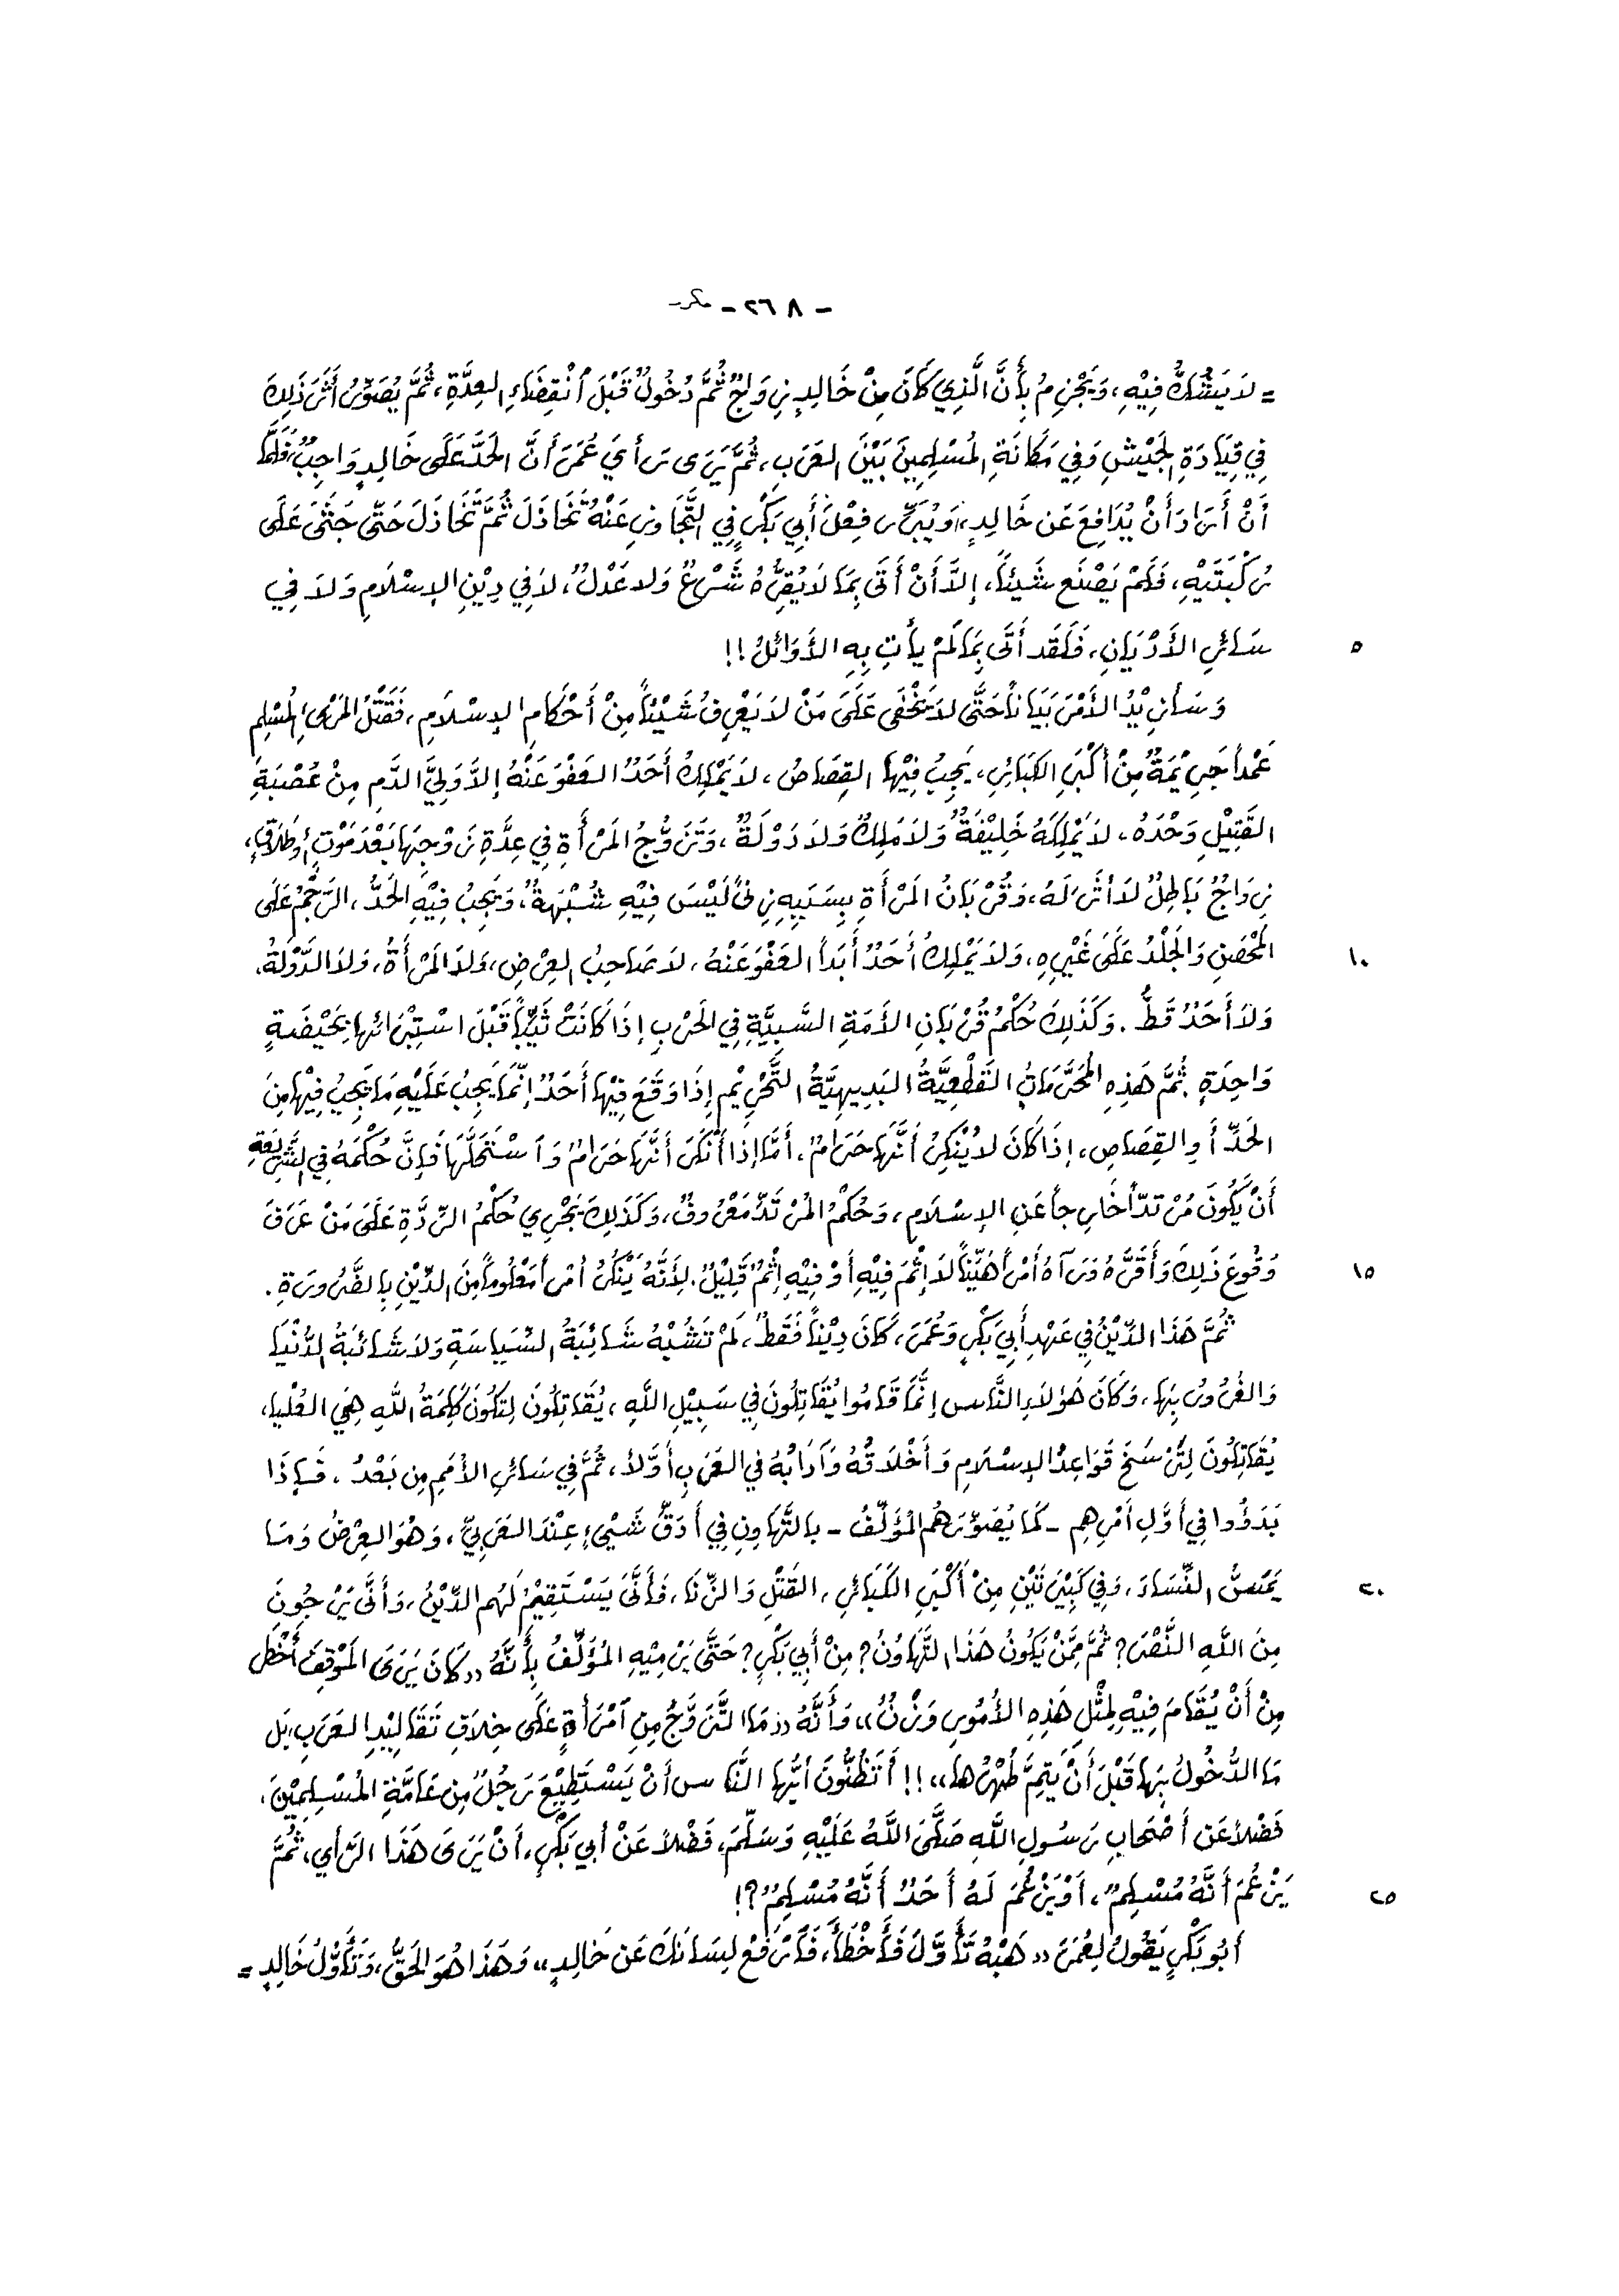 - ٢٦٨ - مكرر
= لَا يَشُكُّ فِيْهِ، وَيَجْزِمُ بِأَنَّ الَّذِي كَانَ مِنْ خَالِدٍ زِوَاجٌ ثُمَّ دُخُولٌ قَبْلَ ٱنْقِضَاءِ العِدَّةِ، ثُمَّ يُصَوِّرُ أَثَرَ ذَلِكَ
فِي قِيَادَةِ الجَيْشِ وَفِي مَكَانَةِ المُسْلِمِينَ بَيْنَ العَرَبِ، ثُمَّ يَرَى رَأيَ عُمَرَ أَنَّ الحَدَّ عَلَى خَالِدٍ وَاجِبٌ، فَلَمَّا
أَنْ أَرَادَ أَنْ يُدَافِعَ عَن خَالِدٍ، أوَ يُبَرِّرَ فِعْلَ أَبِي بَكْرٍ فِي التَّجَاوزِ عَنْهُ تَخَاذَلَ ثُمَّ تَخَاذَلَ حَتَّى جَثَى عَلَى
رُكْبَتَيْهِ، فَلَمْ يَصْنَع شَيئاً، إلَّا أَنْ أَتَى بِمَا لَا يُقِرُّهُ شَرْعٌ وَلا عَدْلٌ، لَا فِي دِيْنِ الإِسْلَامِ وَلَا فِي
٥ سَائرِ الأَدْيَانِ، فَلَقَد أَتَى بِمَا لَمْ يأتِ بِهِ الأَوَائلُ !!
وَسَأزِيْدُ الأَمْرَ بَيَاناً حَتَّى لَا يَخْفَى عَلَى مَنْ لَا يَعْرِفُ شَيْئاً مِنْ أَحْكَامِ الإِسْلَامِ، فَقَتْلُ المَرْءِ المُسْلِمِ
عَمْداً جَرِيْمَةٌ مِنْ أَكْبَرِ الكَبَائرِ، يَجِبُ فِيْهَا القِصَاصُ، لَا يَمْلِكُ أَحَدٌ العَفْوَ عَنْهُ إلاَّ وَلِيُّ الدَّمِ مِنْ عُصْبَةِ
القَتِيْلِ وَحْدَهُ، لَا يَمْلِكُهُ خَلِيْفَةٌ وَلَا مَلِكٌ وَلَا دَوْلَةٌ، وَتَزَوُّجُ المَرْأَةِ فِي عِدَّةِ زَوْجِهَا بَعْدَ مَوْتٍ أَو طَلَاقٍ،
زِوَاجٌ بَاطِلٌ لَا أثَرَ لَهُ، وَقُرْبَانُ المَرْأَةِ بِسَبَبِهِ زِنىً لَيْسَ فِيْهِ شُبْهَةٌ، وَيَجِبُ فِيْهِ الحَدُّ، الرَّجْمُ عَلَى
١٠ المُحْصَنِ وَالجَلْدُ عَلَى غَيْرِهِ، وَلَا يَمْلِكُ أَحَدٌ أَبَداً العَفْوَ عَنْهُ، لَا صَاحِبُ العِرْضِ، وَلَا المَرْأَةُ، وَلَا الدَّوْلَةُ،
وَلَا أَحَدٌ قَطُّ. وَكَذَلِكَ حُكْمُ قُرْبَانِ الأَمَةِ السَّبِيَّةِ فِي الحَرْبِ إذَا كَانَتْ ثَيِّباً قَبْلَ اسْتِبْرَائها بِحَيْضَةٍ
وَاحِدَةٍ. ثُمَّ هَذِهِ المُحَرَّمَاتُ القَطْعِيَّةُ البَدِيهِيَّةُ التَّحْرِيْمِ إذَا وَقَعَ فِيْهَا أَحَدٌ إنَّمَا يَجِبُ عَلَيْهِ مَا يَجِبُ فِيْهَا مِنَ
الحَدِّ أَوِ القِصَاصِ، إذَا كَانَ لَا يُنْكِرُ أَنَّهَا حَرَامٌ، أَمَّا إذَا أَنْكَرَ أَنَّهَا حَرَامٌ وَٱسْتَحَلَّهَا فَإِنَّ حُكْمَهُ فِي الشَّرِيْعَةِ
أَنْ يَكُونَ مُرْتدّاً خَارِجاً عَنِ الإِسْلَامِ، وَحُكْمُ المُرْتَدِّ مَعْرُوفٌ، وَكَذَلِكَ يَجْرِي حُكْمُ الرِّدَّةِ عَلَى مَنْ عَرَفَ
١٥ وُقُوعَ ذَلِكَ وَأَقَرَّهُ وَرَآهُ أَمْراً هَيِّناً لَا إثْمَ فِيْهِ أَوْ فِيْهِ إثْمٌ قَلِيْلٌ. لِأَنَّهُ يُنْكِرُ أمْراً مَعْلُوماً مِنَ الدِّيْنِ بِالضَّرُورَةِ.
ثُمَّ هَذَا الدِّيْنُ فِي عَهْدِ أَبِي بَكْرٍ وَعُمَرَ، كَانَ دِيْناً فَقَطْ، لَمْ تَشُبْهُ شَائِبَةُ السِّيَاسَةِ وَلَا شَائبَةُ الدُّنْيَا
وَالغُرُورُ بِهَا، وَكَانَ هَؤلَاءِ النَّاس إنَّمَا قَامُوا يُقَاتِلُونَ فِي سَبِيْلِ اللَّهِ، يُقَاتِلُونَ لِتَكُونَ كَلِمَةُ اللَّهِ هِيَ العُلْيَا،
يُقَاتِلُونَ لِتَرْسَخَ قَوَاعِدُ الإِسْلَامِ وَأَخْلَاقُهُ وَآدَابُهُ فِي العَرَبِ أَوَّلاً، ثُمَّ فِي سَائرِ الأُمَمِ مِن بَعْدُ، فَإذَا
بَدَؤُوا فِي أَوَّلِ أَمْرِهِم - كَمَا يُصَوِّرُهُم المُؤَلِّفُ - بِالتَّهَاوِنِ فِي أَدَقِّ شَيْءٍ عِنْدَ العَرَبِيِّ، وَهُوَ العِرْضُ وَمَا
٢٠ يَمَسُّ النِّسَاءَ، وَفِي كَبِيْرَتَيْنِ مِنْ أَكْبَرِ الكَبَائرِ، القَتْلِ وَالزِّنَا، فَأَنَّى يَسْتَقِيْمُ لَهُم الدِّيْنُ، وَأَنَّى يَرْجُونَ
مِنَ اللَّهِ النَّصْرَ؟ ثُمَّ مِمَّنْ يَكُونُ هَذَا التَّهَاوُنُ؟ مِنْ أَبِي بَكْرٍ؟ حَتَّى يَرْمِيْهِ المُؤَلِّفُ بِأَنَّهُ «كَانَ يَرَى المَوْقِفَ أَخْطَرَ
مِنْ أَنْ يُقَامَ فِيْهِ لِمِثْلِ هَذِهِ الأُمُورِ وَزْنٌ» وَأَنَّهُ «مَا التَّزَوُّجُ مِنِ ٱمْرَأةٍ عَلَى خِلَافِ تَقَالِيْدِ العَرَبِ، بَل
مَا الدُّخُولُ بِهَا قَبْلَ أَنْ يَتِمَّ طُهْرُهَا» !! أَتَظُنُّونَ أيُّهَا النَّاس أنْ يَسْتَطِيْعَ رَجُلٌ مِن عَامَّةِ المُسْلِمِيْنَ،
فَضْلاً عَن أَصْحَابِ رَسُولِ اللَّهِ صَلَّى اللَّهُ عَلَيْهِ وَسَلَّمَ، فَضْلاً عَنْ أبي بَكْرٍ، أنْ يَرَى هَذَا الرَّأي، ثُمَّ
٢٥ يَزْعُمَ أَنَّهُ مُسْلِمٌ، أَوْ يَزْعُمَ لَهُ أَحَدٌ أَنَّهُ مُسْلِمٌ؟!
أبُو بَكْرٍ يَقُولُ لِعُمَرَ «هَبْهُ تَأَوَّلَ فَأَخْطَأَ، فَٱرْفَعْ لِسَانَكَ عَن خَالِدٍ» وَهَذَا هُوَ الحَقُّ، وَتَأَوُّلُ خَالِدٍ =